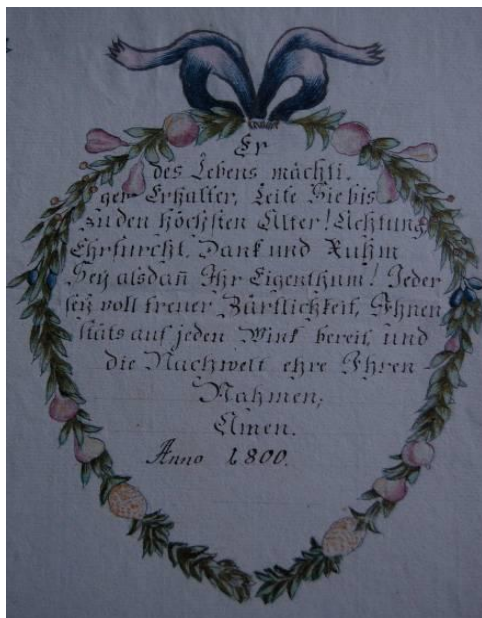 Er
des Lebens mächti,
ger Erhalter, Leite Sie bis
zu den höchsten Alter! Achtung
Ehrfurcht, Dank und Ruhm
Seÿ alsdañ Ihr Eigenthum! Jeder
seÿ voll treuer Zärtlichkeit, Ihnen
stäts auf jeden Wink bereit, und
die Nachwelt ehre Ihren
Nahmen,
Amen.
Anno 1800.